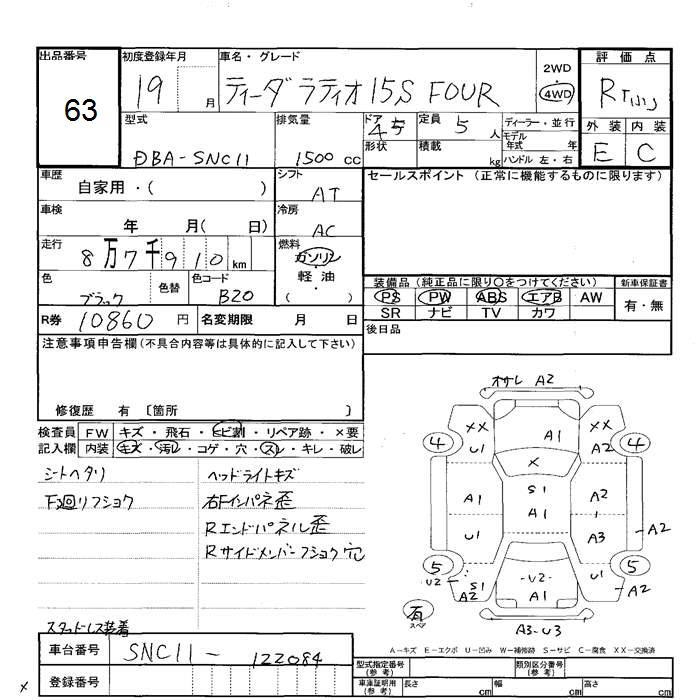 出品番号
63
初度登録年月
19 月
車名・グレード
ティーダ ラティオ 15S FOUR
2WD
4WD
評価点
R
外装 内装
E C
型式
DBA-SNC11
排気量
1500 cc
ドア 45
形状
定員 5 人
積載 kg
ディーラー・並行
モデル年式 年
ハンドル 左・右
車歴
自家用・( )
シフト
AT
セールスポイント (正常に機能するものに限ります)
車検
年 月( 日)
冷房
AC
走行
8万7千910km
燃料
ガソリン
軽・油
( )
色
ブラック
色替
色コード
B20
装備品 (純正品に限り○をつけてください)
PS PW ABS エアB AW
SR ナビ TV カワ
新車保証書
有・無
R券 10860 円
名変期限 月 日
後日品
注意事項申告欄(不具合内容等は具体的に記入して下さい)
修復歴 有 〔箇所 〕
検査員記入欄
FW キズ・飛石・ヒビ割・リペア跡・×要
内装 キズ・汚レ・コゲ・穴・スレ・キレ・破レ
シートヘタリ
F廻リフショク
スタッドレス装着
ヘッドライトキズ
右Fインパネ歪
Rエンドパネル歪
Rサイドメンバーフショク穴
オサレ A2
XX U1
A1
XX A2
4 4
X
A1
S1
A1
A2
U1
A3
A2
5 5
U2
S1
A2
-U2-
A1
U1
A2
有
スペア
A3-U3
A-キズ E-エクボ U-凹み W-補修跡 S-サビ C-腐食 XX-交換済
車台番号
SNC11-122084
登録番号
型式指定番号(参考)
類別区分番号(参考)
車庫証明用(参考)
長さ cm
幅 cm
高さ cm